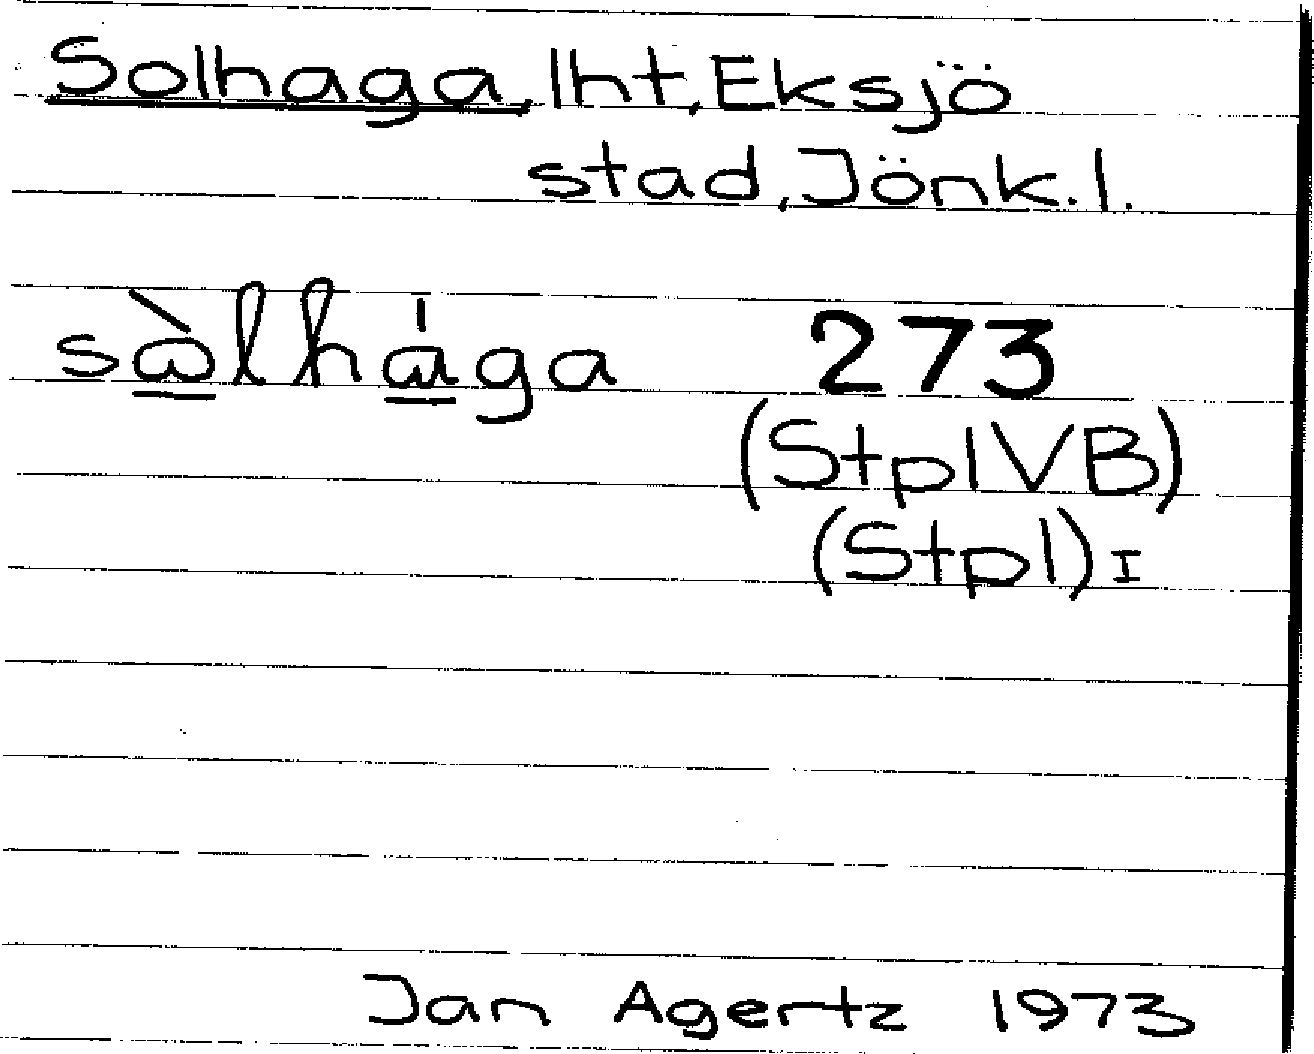 Solhaga, lht, Eksjö
stad, Jönk. l.
sò̲lhá̲ga 273
(Stpl VB)
(Stpl) I
Jan Agertz 1973